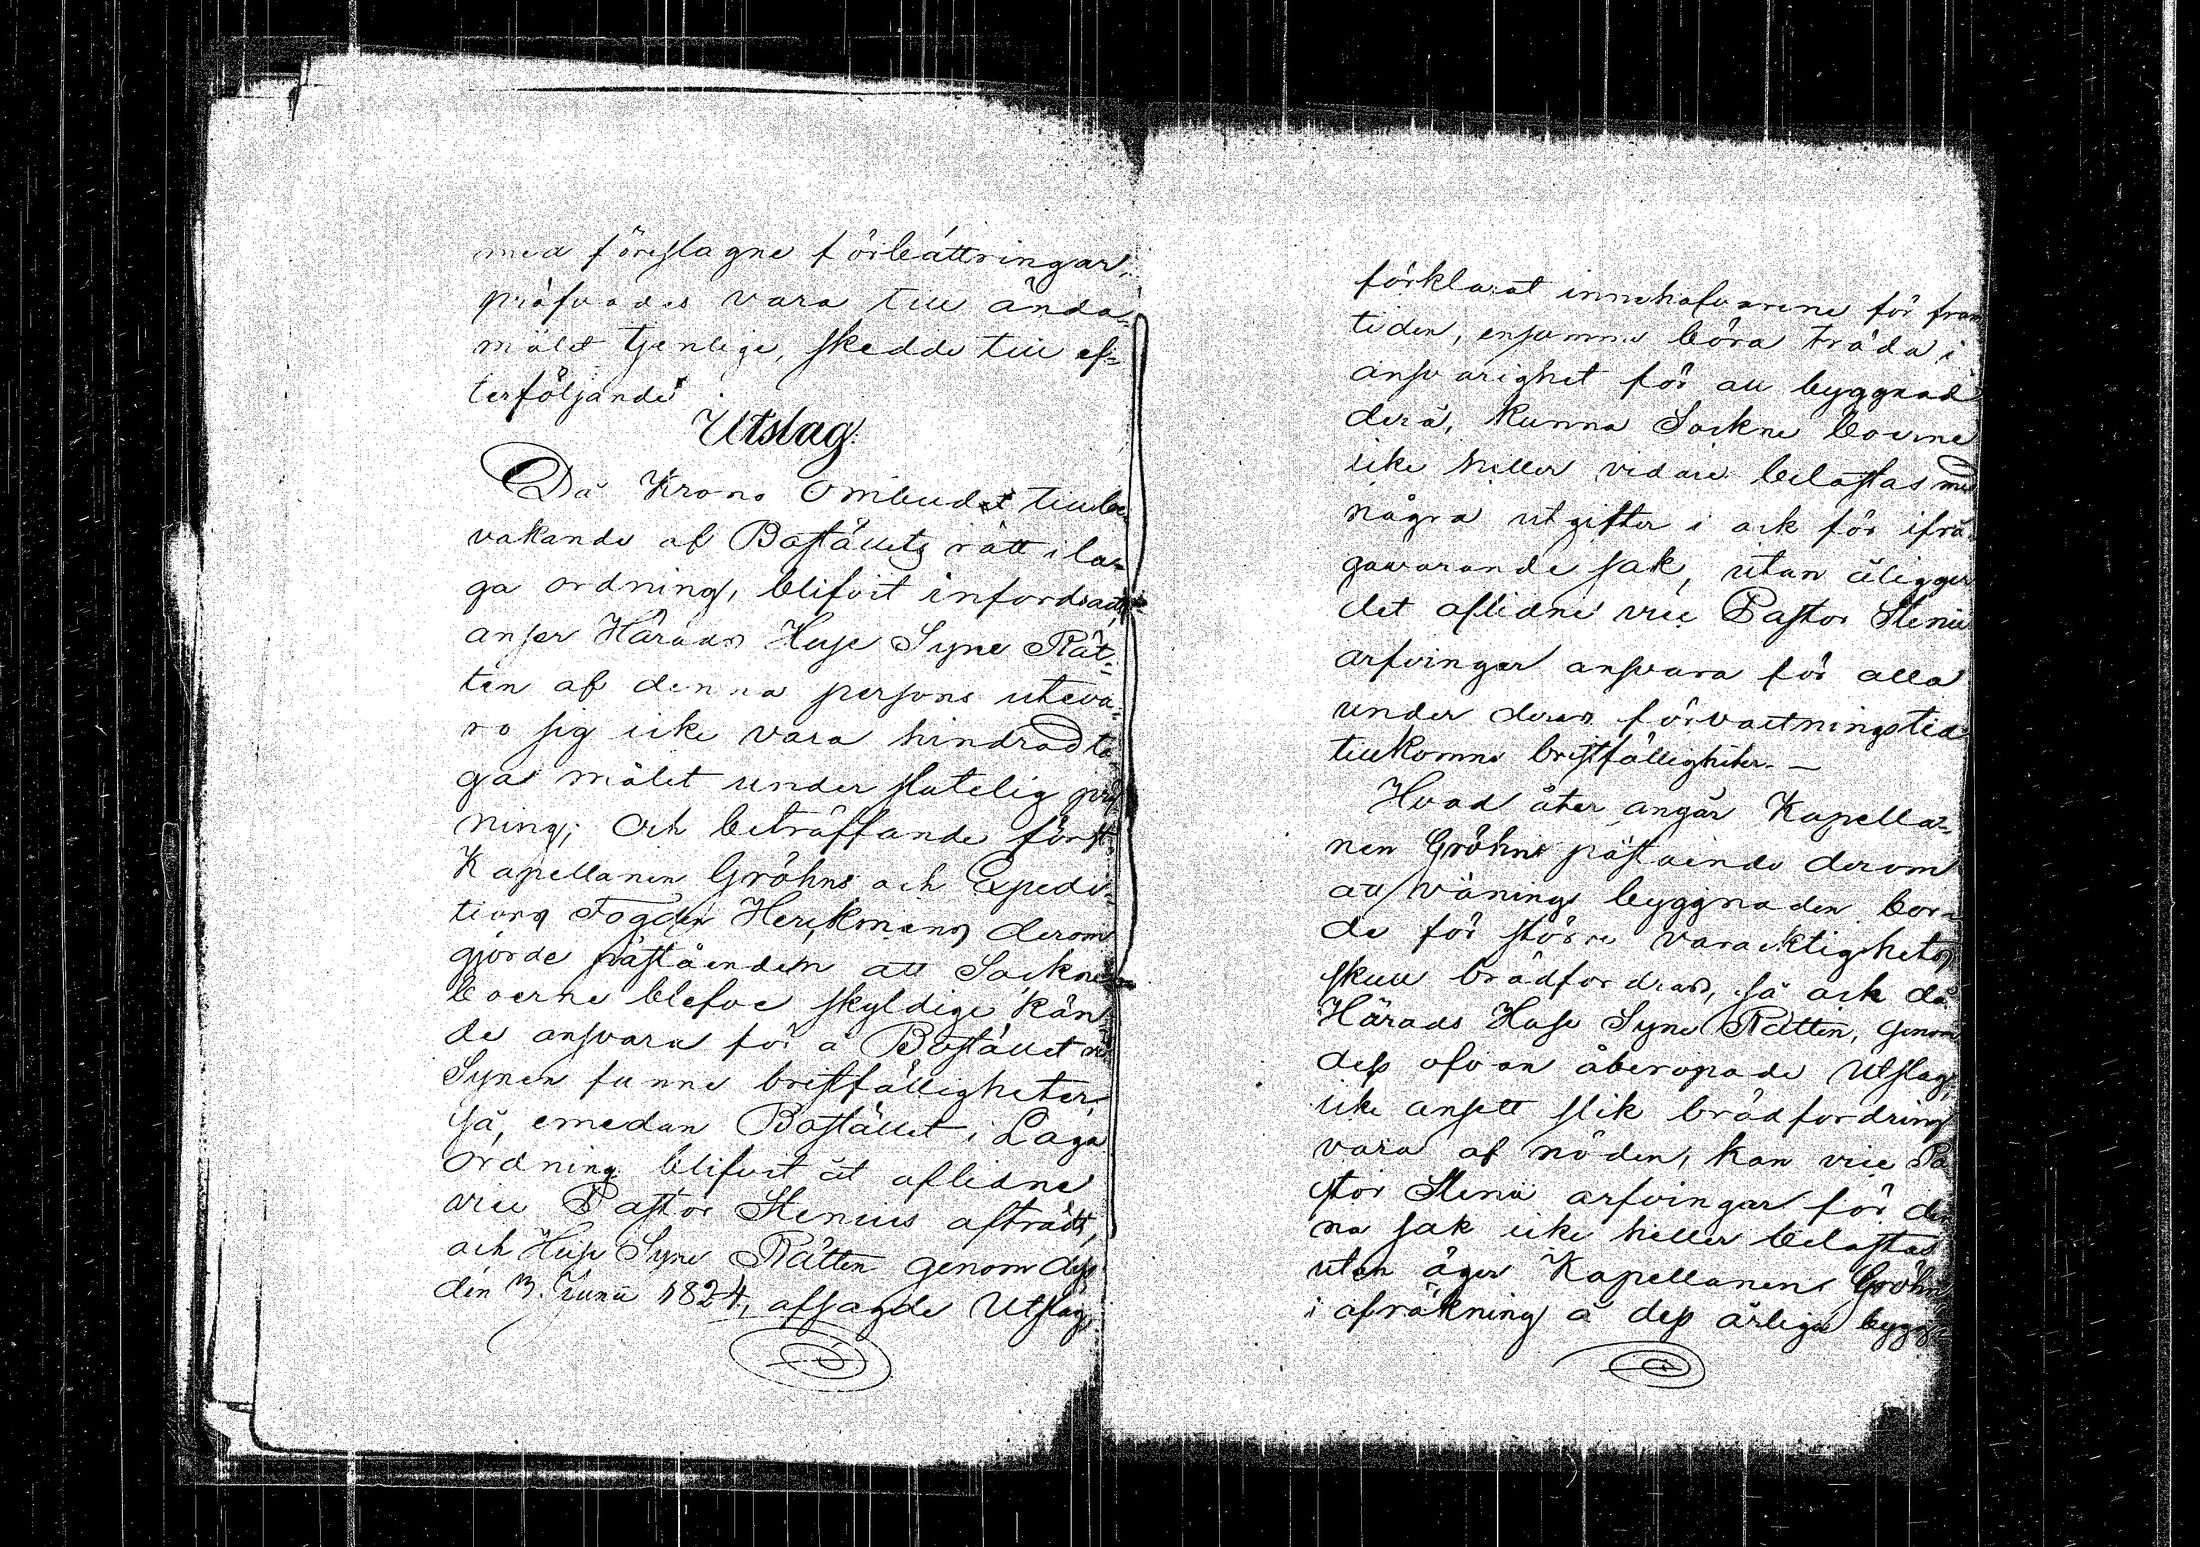 med föreslagne förbättringar,
pröfvades vara till ända-
målet tjenlige, skedde till ef-
terföljande
Utslag:
Då Krono Ombudet till be-
vakande af Boställets rätt i la-
ga ordning, blifvit infordradt,
anser Härads Huse Syne Rät-
ten af denna persons uteva-
ro sig icke vara hindrad ta-
ga målet under slutelig pröf-
ning; Och beträffande först
Kapellanen Gröhns och Expedi-
tions Fogden Herckmans derom
gjorde påståenden att Sockne
boerne blefve skyldige kän
de ansvara för å Bostället vid
Synen funne bristfälligheter,
så, emedan Bostället i Laga
ordning blifvit åt aflidne
vice Pastor Stenius afträdt,
och Huse Syne Rätten genom dess
den 3. Junii 1824, afsagde Utslag,
förklarat innehafvarene för fram
tiden, ensamme böra träda i
ansvarighet för all byggnad
derå, kunna Sockne boerne
icke heller vidare belastas med
några utgifter i och för ifrå-
gavarande sak, utan åligger
det aflidne vice Pastor Stenii
arfvingar ansvara för alla
under deras förvaltningstid
tillkomne bristfälligheter. —
Hvad åter angår Kapella-
nen Gröhns påstående derom
att Vånings byggnaden bor-
de för större varacktighets
skull brädfordras, så och då
Härads Huse Syne Rätten, genom
dess ofvan åberopade Utslag,
icke ansett slik brädfordring
vara af nöden, kan vice Pa
stor Stenii arfvingar för den
na sak icke heller belastas
utan äger Kapellanen Gröhn,
i afräkning å dess årliga bygg-